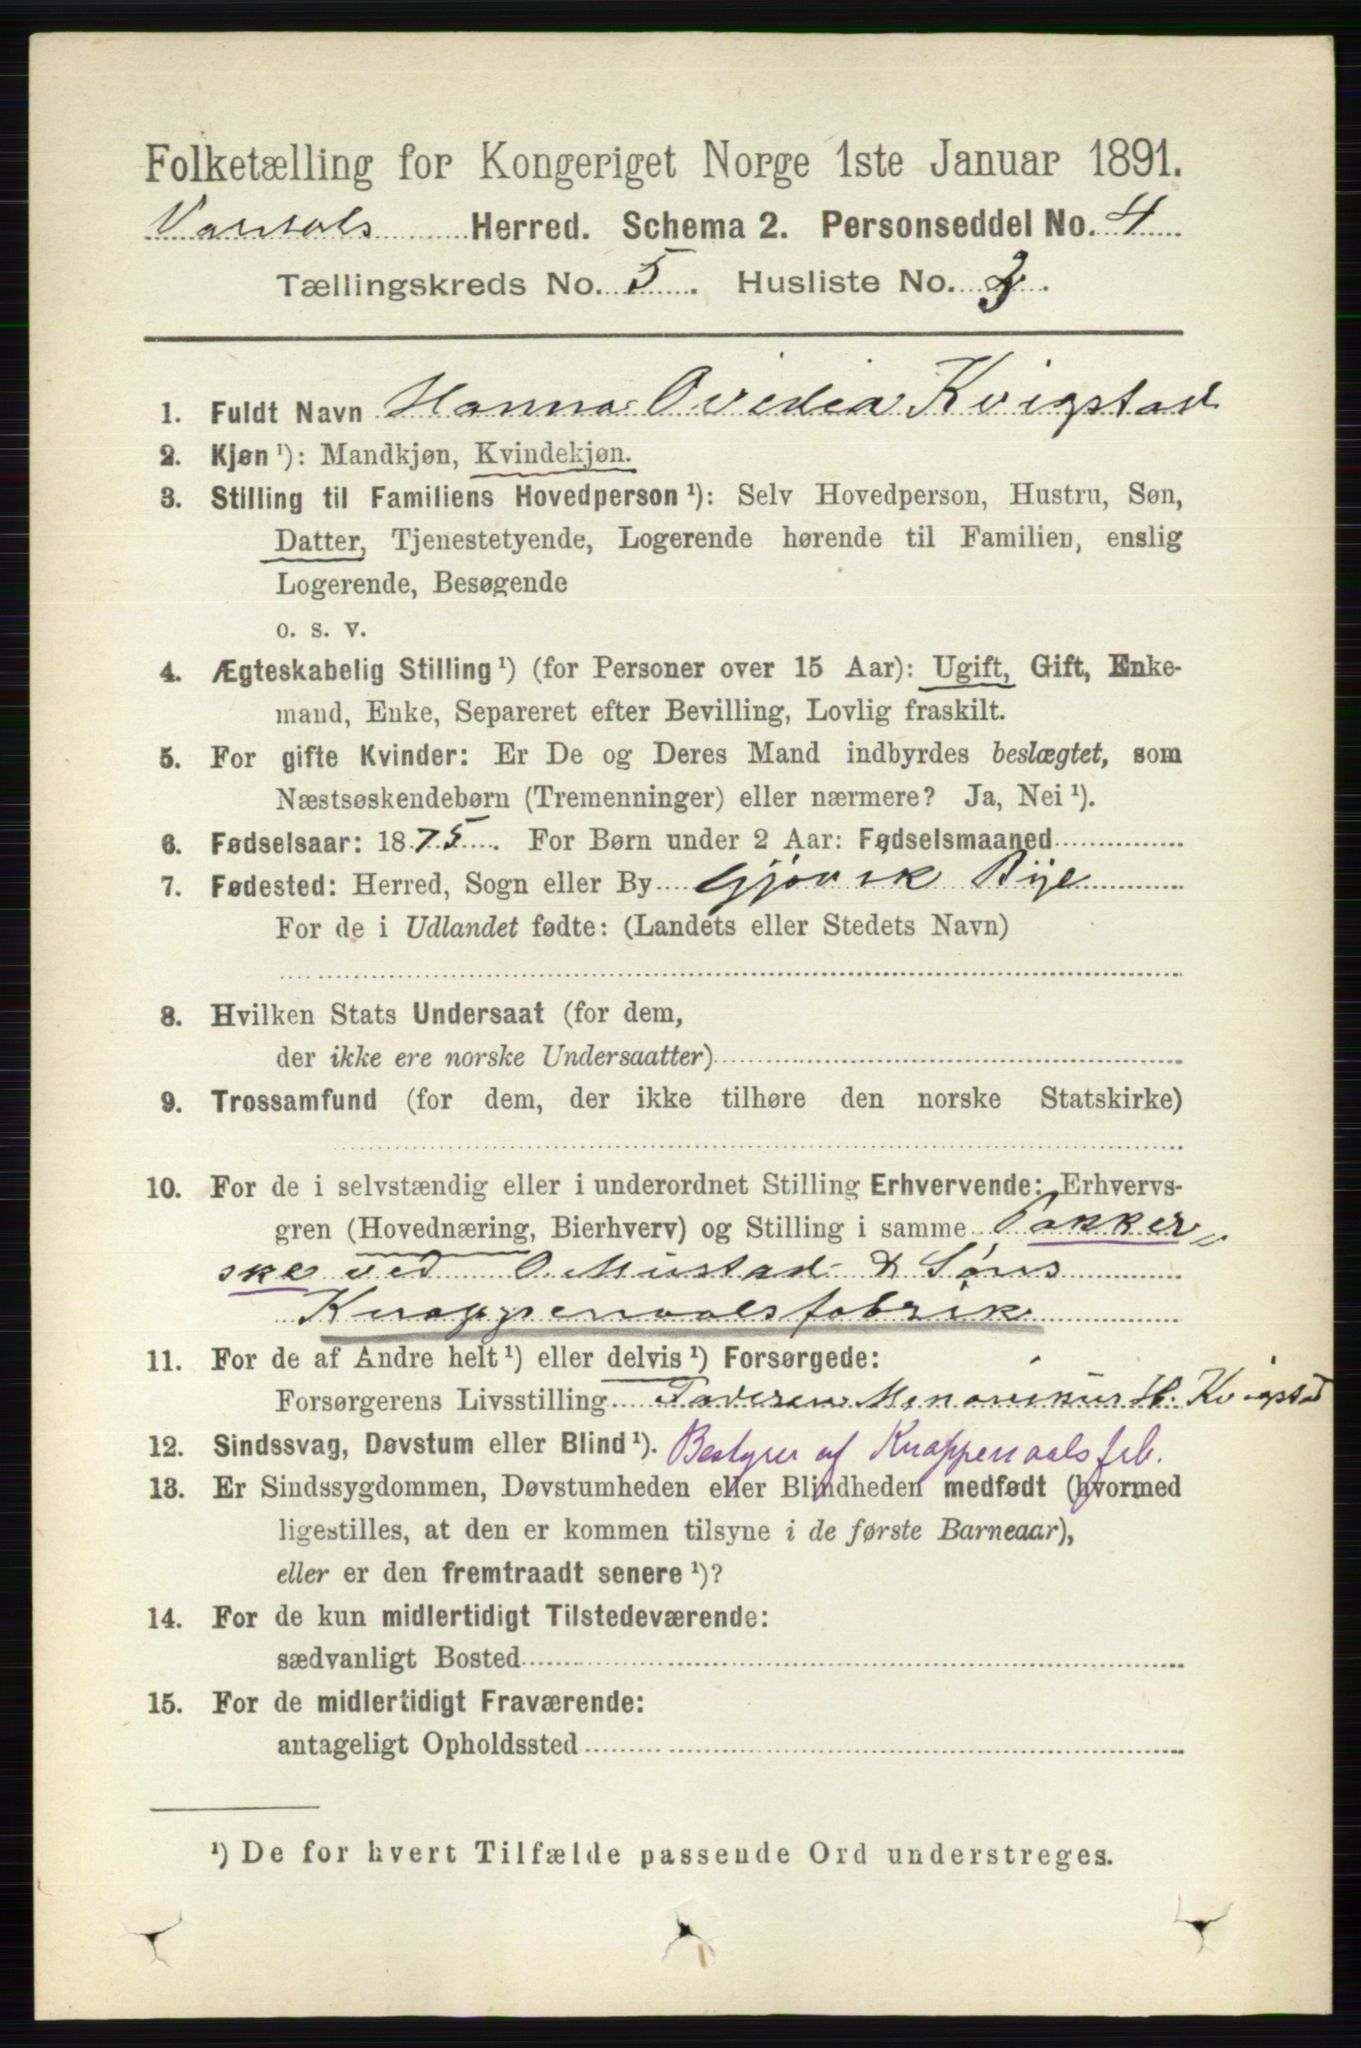 Folketælling for Kongeriget Norge 1ste Januar 1891.
Vardals Herred. Schema 2. Personseddel No. 4
Tællingskreds No. 5. Husliste No. 3.
1. Fuldt Navn Hanna Ovidia Kvigstad
2. Kjøn ¹): Mandkjøn, Kvindekjøn.
3. Stilling til Familiens Hovedperson ¹): Selv Hovedperson, Hustru, Søn,
Datter, Tjenestetyende, Logerende hørende til Familien, enslig
Logerende, Besøgende
o. s. v.
4. Ægteskabelig Stilling ¹) (for Personer over 15 Aar): Ugift, Gift, Enke-
mand, Enke, Separeret efter Bevilling, Lovlig fraskilt.
5. For gifte Kvinder: Er De og Deres Mand indbyrdes beslægtet, som
Næstsøskendebørn (Tremenninger) eller nærmere? Ja, Nei ¹).
6. Fødselsaar: 1875. For Børn under 2 Aar: Fødselsmaaned
7. Fødested: Herred, Sogn eller By Gjøvik Bye
For de i Udlandet fødte: (Landets eller Stedets Navn)
8. Hvilken Stats Undersaat (for dem,
der ikke ere norske Undersaatter)
9. Trossamfund (for dem, der ikke tilhøre den norske Statskirke)
10. For de i selvstændig eller i underordnet Stilling Erhvervende: Erhvervs-
gren (Hovednæring, Bierhverv) og Stilling i samme Pakker-
ske ved O. Mustad & Søns
Knappenaalsfabrik
11. For de af Andre helt ¹) eller delvis ¹) Forsørgede:
Forsørgerens Livsstilling Faderen H. Kvigstad
12. Sindssvag, Døvstum eller Blind ¹). Bestyrer af Knappenaalsfab.
13. Er Sindssygdommen, Døvstumheden eller Blindheden medfødt (hvormed
ligestilles, at den er kommen tilsyne i de første Barneaar),
eller er den fremtraadt senere ¹)?
14. For de kun midlertidigt Tilstedeværende:
sædvanligt Bosted
15. For de midlertidigt Fraværende:
antageligt Opholdssted
¹) De for hvert Tilfælde passende Ord understreges.